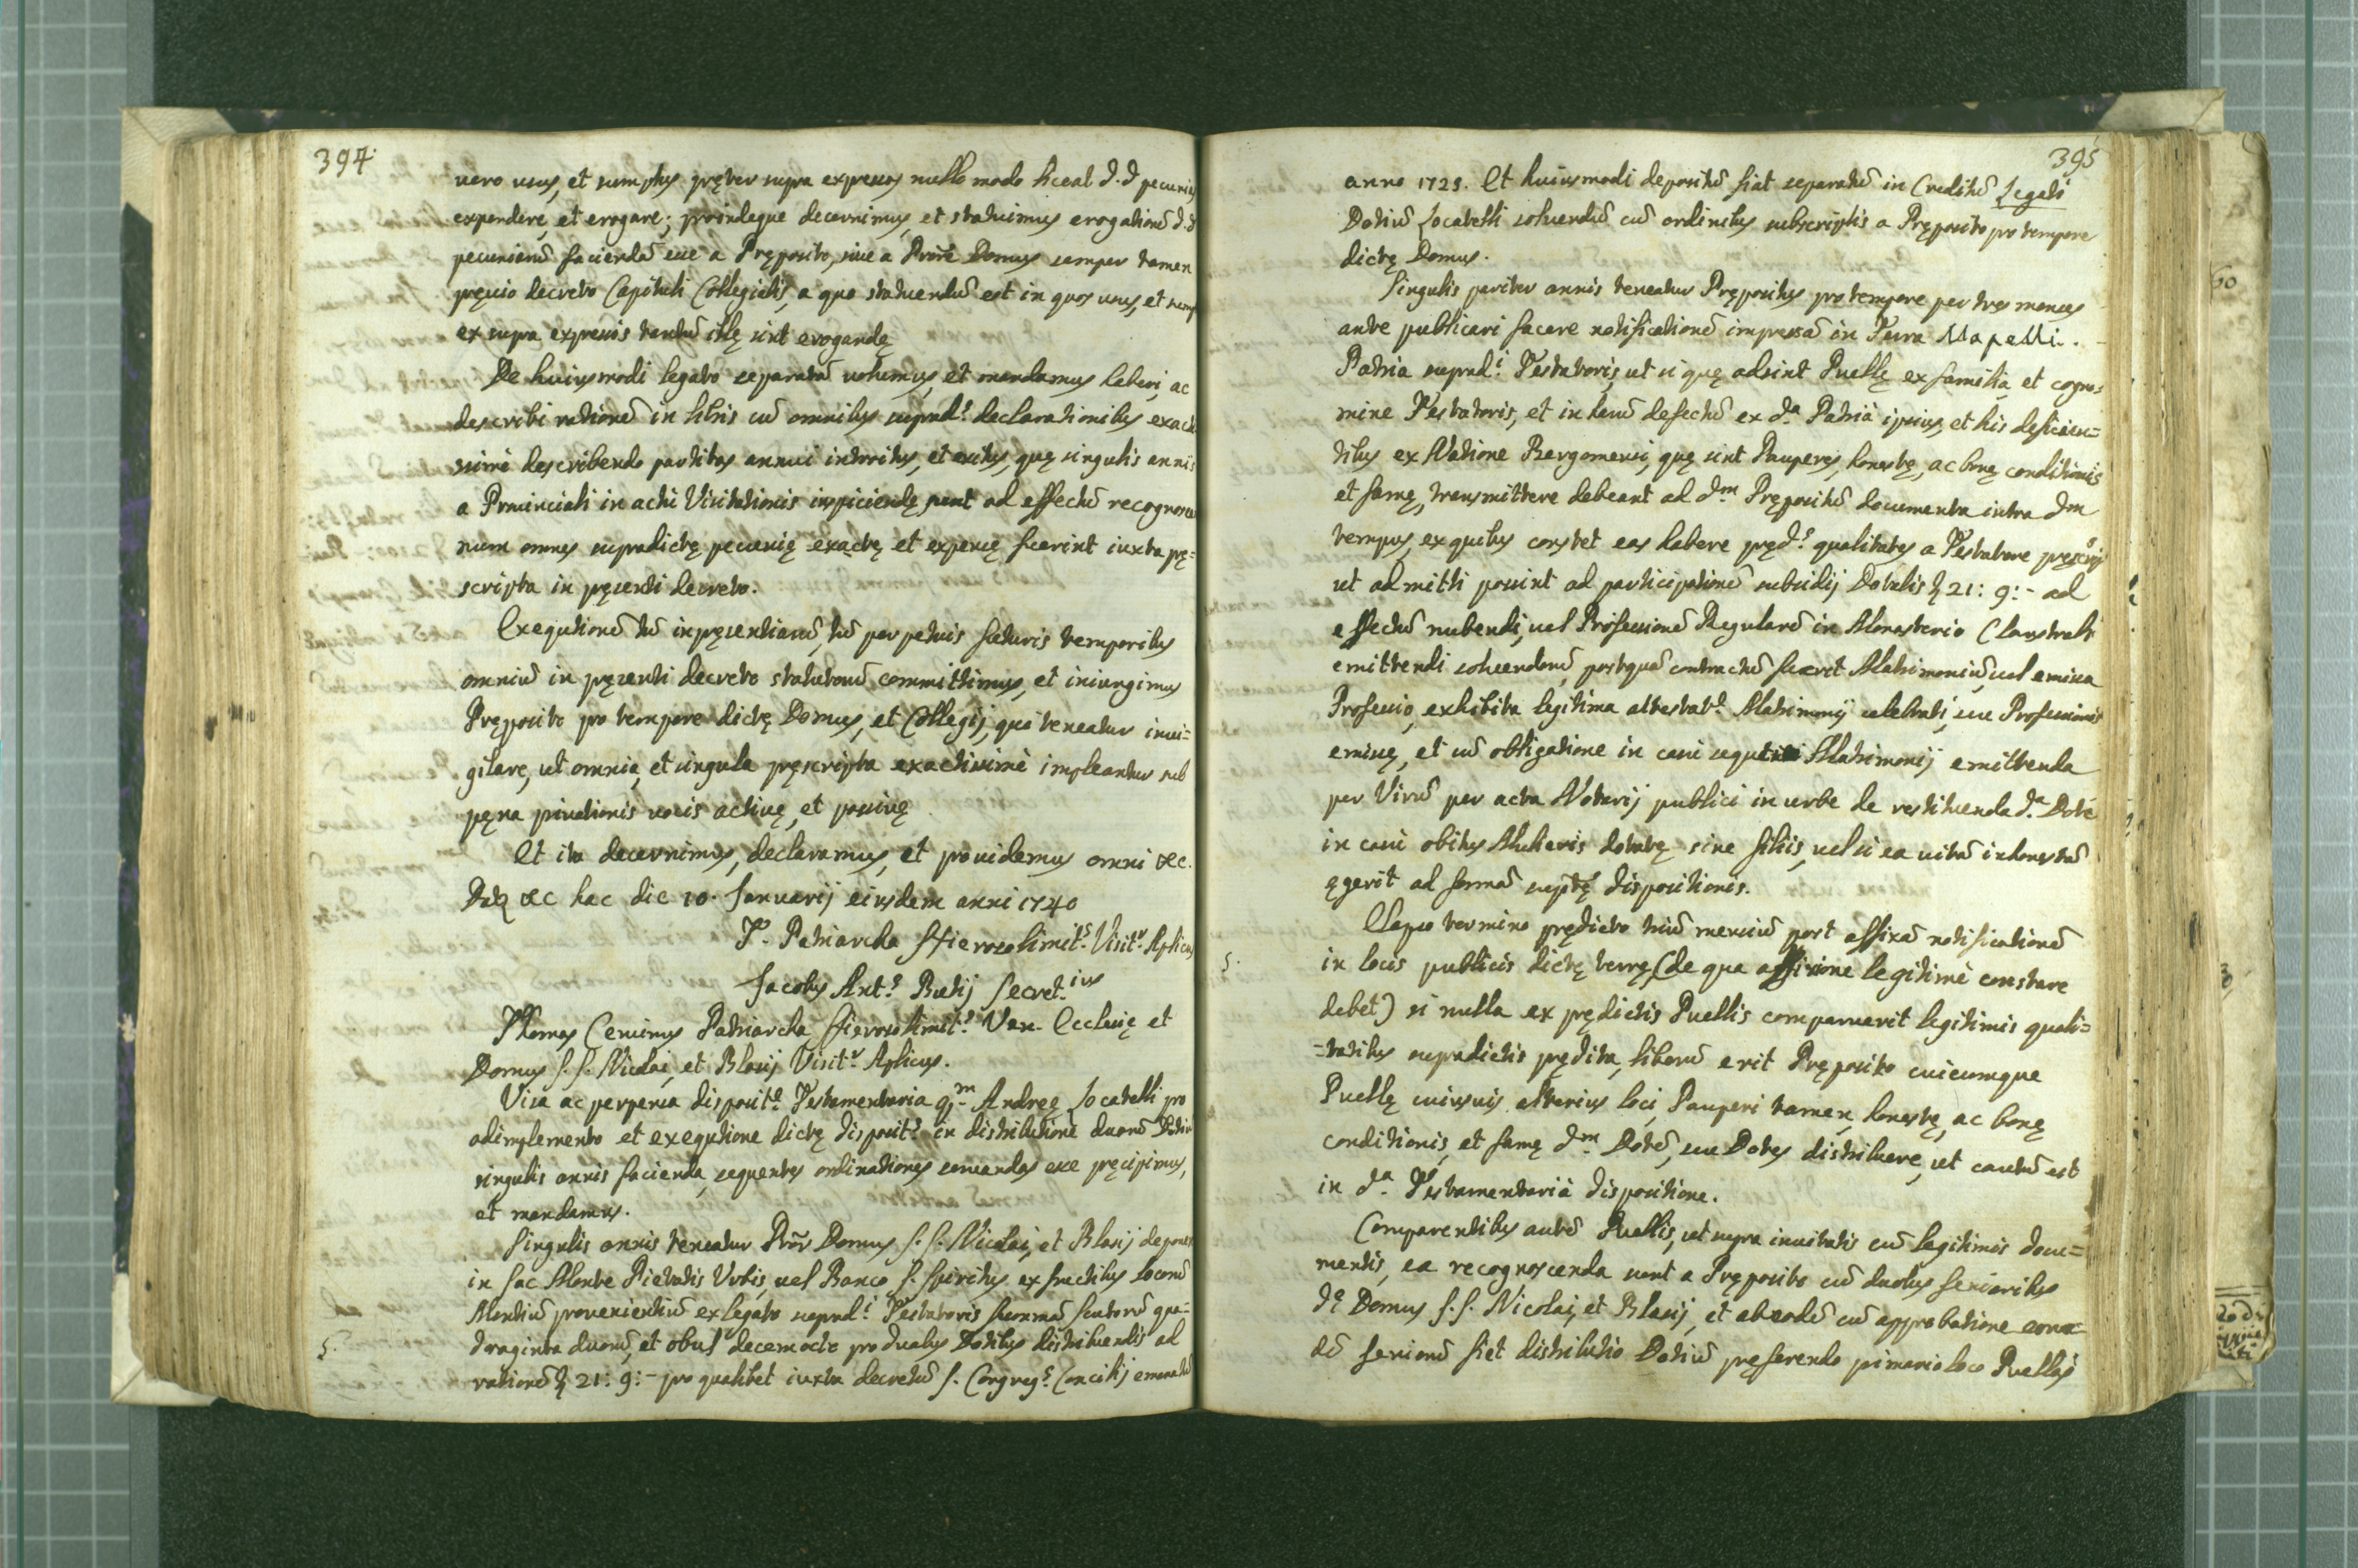 394
uero usus, et sumptus pręter supra expressos nullo modo liceat d.d. pecunias
expendere, et erogare; proindeque decernimus, et statuimus erogationẽ d.d.
pecuniarũ faciendã siue a Pręposito, siue a Prõre Domus semper tamen
pręuio decreto Capituli Collegialis, a quo statuendũ est in quos usus, et sump
ex supra expressis tantũ illę sint erogandę
De huiusmodi legato separatã uolumus, et mandamus haberi, ac
describi rationẽ in libris cũ omnibus suprad.s declarationibus exacti
ssimè describendo partitas annui introitus, et exitus, quę singulis annis
a Prouinciali in actu Visitationis inspiciendę sunt ad effectũ recognosce
num omnes supradictę pecunię exactę et expensę fuerint iuxta pę=
scripta in pęsenti decreto.
Exequtionẽ tũ inpęsentiarũ, tũ perpetuis futuris temporibus
omniũ in pęsenti decreto statutorũ committimus, et iniungimus
Pręposito pro tempore dictę Domus, et Collegij, qui teneatur inui=
gilare, ut omnia, et singula pręscripta exactissimè impleantur sub
pęna priuationis uocis actiuę, et passiuę
Et ita decernimus, declaramus, et prouidemus omni &c.
Dat &c hac die 10. Januarij eiusdem anni 1740
T. Patriarcha Hierosolimit.s Visit.r Aplicus
Jacobus Ant.s Butij Secret.ius
Thomas Ceruinus Patriarcha Hierosolimit.s Ven. Ecclesię et
Domus S. S. Nicolai, et Blasij Visit.r Aplicus.
Visa ac perpensa disposit.e Testamentaria q.m Andreę Locatelli pro
adimplemento et exequtione dictę disposit.s in distributione duarũ Dotiũ
singulis annis facienda, sequentes ordinationes seruandas esse pręcipimus,
et mandamus.
Singulis annis teneatur Prõr Domus S. S. Nicolai, et Blasij depone
in Sac Monte Pietatis Urbis, uel Banco S. Spiritus ex fructibus locorũ
Montiũ prouenientiũ ex legato suprad.i Testatoris summã scutorũ qua=
§.
draginta duorũ, et obul decemocto pro duabus Dotibus distribuendis ad
rationẽ 21: 9:- pro qualibet iuxta decretũ S. Congreg.s Concilij emanatũ
395
anno 1725. Et huiusmodi depositũ fiat separatũ in Creditũ Legati
Dotiũ Locatelli soluendũ cũ ordinibus subscriptis a Pręposito pro tempore
dictę Domus.
Singulis pariter annis teneatur Prępositus pro tempore per tres menses
ante publicari facere notificationẽ impressã in Terra Mapelli.
Patria suprad.i Testatoris, ut si quę adsint Puellę ex familia, et cogno=
mine Testatoris, et in harũ defectũ ex d.a Patria ipsius, et his deficien=
tibus ex Natione Bergomensi, quę sint Pauperes, honestę, ac bonę conditionis
et famę, transmittere debeant ad d.m Prępositũ documenta intra d.m
tempus, ex quibus constet eas habere pręd.s qualitates a Testatore pręscrip
ut admitti possint ad participationẽ subsidij Dotalis 21: 9:- ad
effectũ nubendi, uel Professionẽ Regularẽ in Monasterio Claustrali
emittendi soluendarũ, postquã contractũ fuerit Matrimoniũ, uel emissa
Professio, exhibita legitima attestat.e Matrimonij celebrati, siue Professionis
emissę, et cũ obligatione in casu sequti Matrimonij emittenda
per Virũ per acta Notarij publici in urbe de restituenda d.a Dote
in casu obitus Mulieris dotatę sine filijs, uel si ea uitã inhonestã
ęgerit ad formã supt̃ę dispositionis.
Elapso termino prędicto triũ mensiũ post affixã notificationẽ
§.
in locis publicis dictę terrę, (de qua affixione legitimè constare
debet) si nulla ex prędictis Puellis comparuerit legitimis quali=
=tatibus supradictis prędita, liberũ erit Pręposito cuicumque
Puellę cuiusuis alterius loci, Pauperi tamen, honestę, ac bonę
conditionis, et famę d.m Dotẽ, siue Dotes distribuere, ut cautũ est
in d.a Testamentaria dispositione.
Comparentibus autẽ Puellis, ut supra inuitatis cũ legitimis docu=
mentis, ea recognoscenda sunt a Pręposito cũ duobus Senioribus
d.ę Domus S. S. Nicolai, et Blasij, et ab eodẽ cũ approbatione eorun=
dẽ Seniorũ fiet distributio Dotiũ pręferendo primario loco Puellas